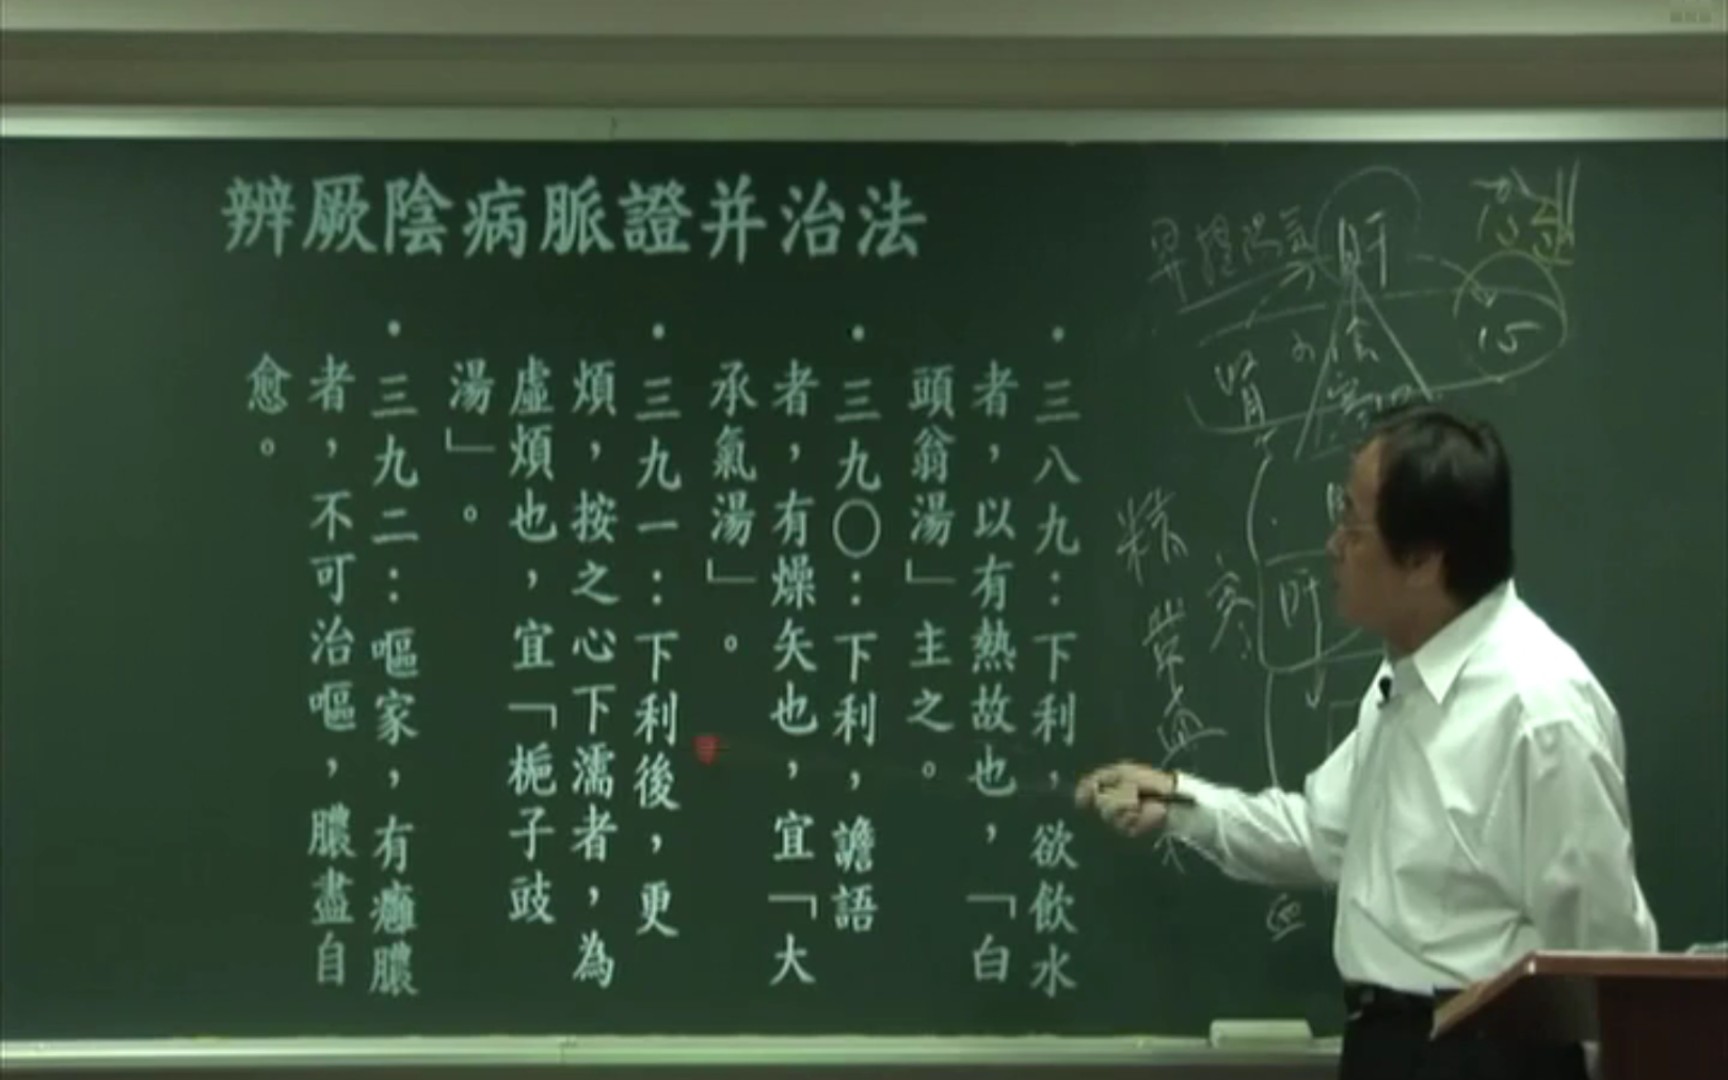 辨厥陰病脈證并治法
・三八九：下利，欲飲水
者，以有熱故也，「白
頭翁湯」主之。
・三九〇：下利，譫語
者，有燥矢也，宜「大
承氣湯」。
・三九一：下利後，更
煩，按之心下濡者，為
虛煩也，宜「梔子豉
湯」。
・三九二：嘔家，有癰膿
者，不可治嘔，膿盡自
愈。
肝
腎
心
精
寒
肝